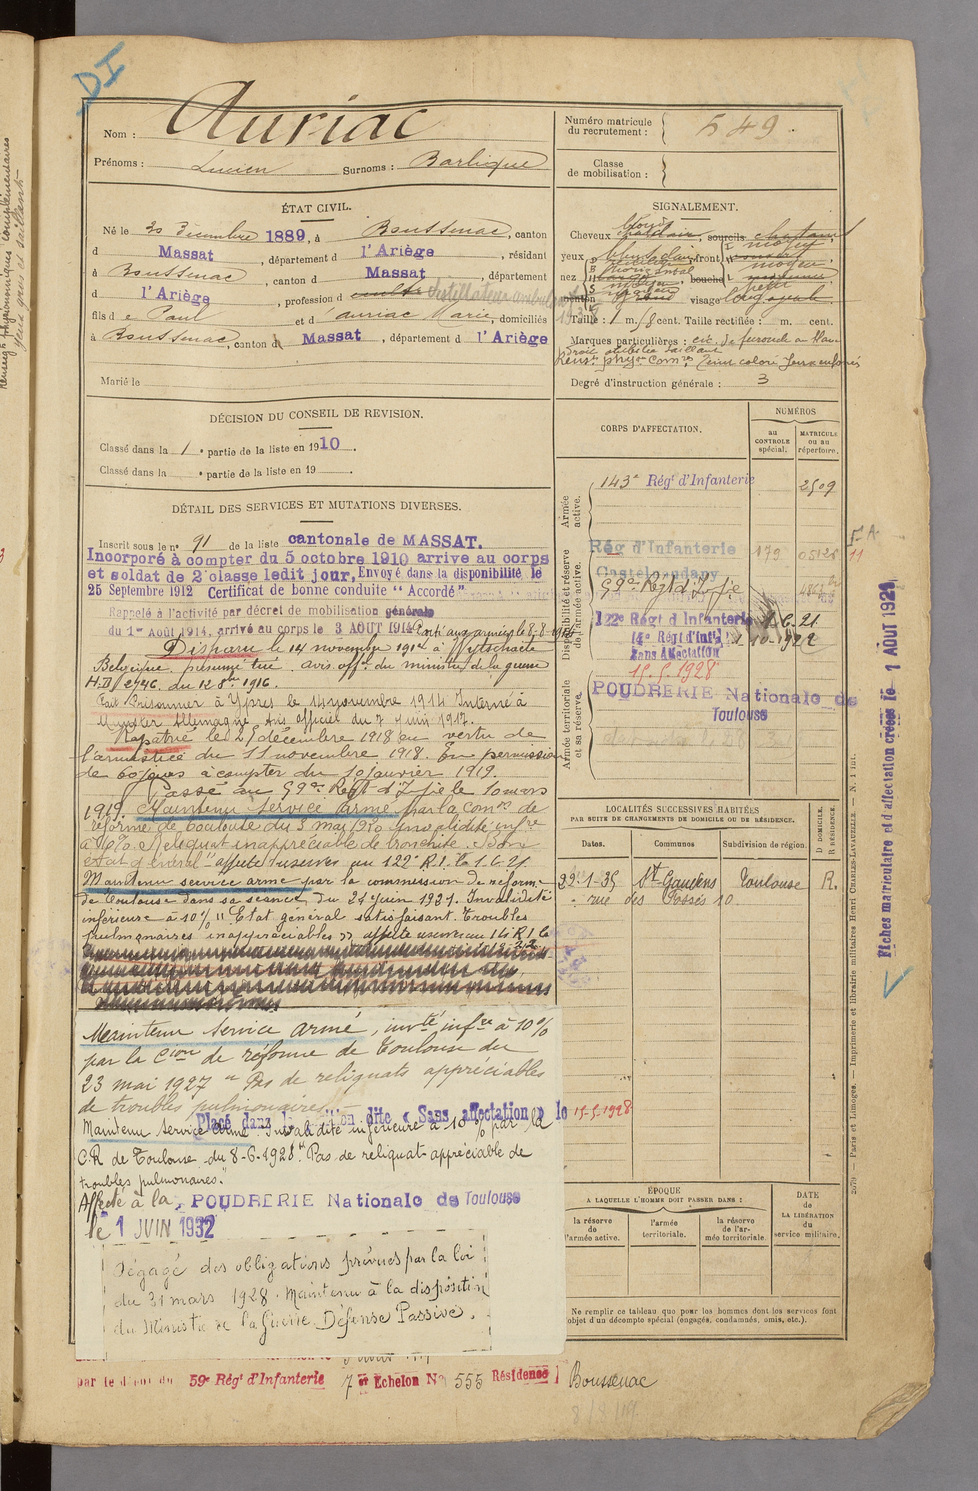 DI
Nom : Auriac
Prénoms : Lucien Surnoms : Barlique
Numéro matricule du recrutement : 549.
Classe de mobilisation :
ÉTAT CIVIL.
Né le 30 Décembre 1889, à Boussenac, canton
d Massat, département d l'Ariège, résidant
à Boussenac, canton d Massat, département
d l'Ariège, profession d
fils d e Paul et d' auriac Marie, domiciliés
à Boussenac, canton d Massat, département d l'Ariège
Marié le
SIGNALEMENT.
Cheveux blonds, sourcils
yeux front moyen
nez bouche
menton visage long
Taille : 1 m. cent. Taille rectifiée : m. cent.
Marques particulières : cic. de furoncle
Degré d'instruction générale : 3
DÉCISION DU CONSEIL DE REVISION.
Classé dans la 1e partie de la liste en 1910.
Classé dans la e partie de la liste en 19 .
DÉTAIL DES SERVICES ET MUTATIONS DIVERSES.
Inscrit sous le n° 91 de la liste cantonale de MASSAT.
Incorporé à compter du 5 octobre 1910 arrive au corps
et soldat de 2e classe ledit jour. Envoyé dans la disponibilité le
25 Septembre 1912 Certificat de bonne conduite "Accordé"
Rappelé à l'activité par décret de mobilisation générale
du 1er Août 1914, arrivé au corps le 3 AOUT 1914 Parti aux armées le 8-8-1914
Disparu le 14 novembre 1914 à Wytschaete
Belgique, présumé tué. avis off. du ministre de la guerre
H.D 2746. du 12 8bre 1916.
Fait Prisonnier à Ypres le 14 novembre 1914 Interné à
Munster Allemagne Avis officiel du 7 juin 1917.
Rapatrié le 27 décembre 1918 en vertu de
l'armistice du 11 novembre 1918. En permission
de 60 jours à compter du 10 janvier 1919.
Passé au 59e Régt d'Inf.ie le 10 mars
1919. Maintenu service armé par la Comon de
réforme de Toulouse du 3 mai 1920 invalidité infre
à 10%. Reliquat inappréciable de bronchite. Bon
état général. affecté réserves au 122e R.I. le 1.6.21
Maintenu service armé par la commission de réforme
de Toulouse dans sa séance du 24 juin 1921. Invalidité
inférieure à 10% "Etat général satisfaisant. Troubles
pulmonaires inappréciables" affecté réserve au 14e R.I. le
Maintenu service armé, invté infre à 10%
par la Cion de réforme de Toulouse du
23 mai 1927 "Pas de reliquats appréciables
de troubles pulmonaires"
Placé dans la position dite « Sans affectation » le 15.5.1928
Maintenu service armé. Invalidité inférieure à 10% par la
C.R de Toulouse du 8-6-1928 "Pas de reliquat appréciable de
troubles pulmonaires."
Affecté à la POUDRERIE Nationale de Toulouse
le 1 JUIN 1932
Dégagé des obligations prévues par la loi
du 31 mars 1928. Maintenu à la disposition
du Ministre de la Guerre. Défense Passive.
par le dépôt du 59e Régt d'Infanterie 7e Echelon No 555 Résidence Boussenac
CORPS D'AFFECTATION.
NUMÉROS
au CONTROLE spécial.
MATRICULE ou au répertoire.
Armée active.
143e Régt d'Infanterie 2509
Disponibilité et réserve de l'armée active.
Rég d'Infanterie 179 05128
Castelnaudary
59e Régt d'Inf.ie
122e Régt d'Infanterie 1.6.21
14e Régt d'Inf. 10-1922
Sans Affectation
15.5.1928
Armée territoriale et sa réserve.
POUDRERIE Nationale de
Toulouse
LOCALITÉS SUCCESSIVES HABITÉES
PAR SUITE DE CHANGEMENTS DE DOMICILE OU DE RÉSIDENCE.
Dates. Communes Subdivision de région. D DOMICILE. R RÉSIDENCE.
29-1-35 St Gaudens Toulouse R.
rue des Fossés 10.
ÉPOQUE
A LAQUELLE L'HOMME DOIT PASSER DANS :
la réserve de l'armée active. l'armée territoriale. la réserve de l'armée territoriale.
DATE de LA LIBÉRATION du service militaire.
Ne remplir ce tableau que pour les hommes dont les services font
objet d'un décompte spécial (engagés, condamnés, omis, etc.).
Fiches matriculaire et d'affectation créées le 1 AOUT 1921
Paris et Limoges. — Imprimerie et librairie militaires Henri CHARLES-LAVAUZELLE.